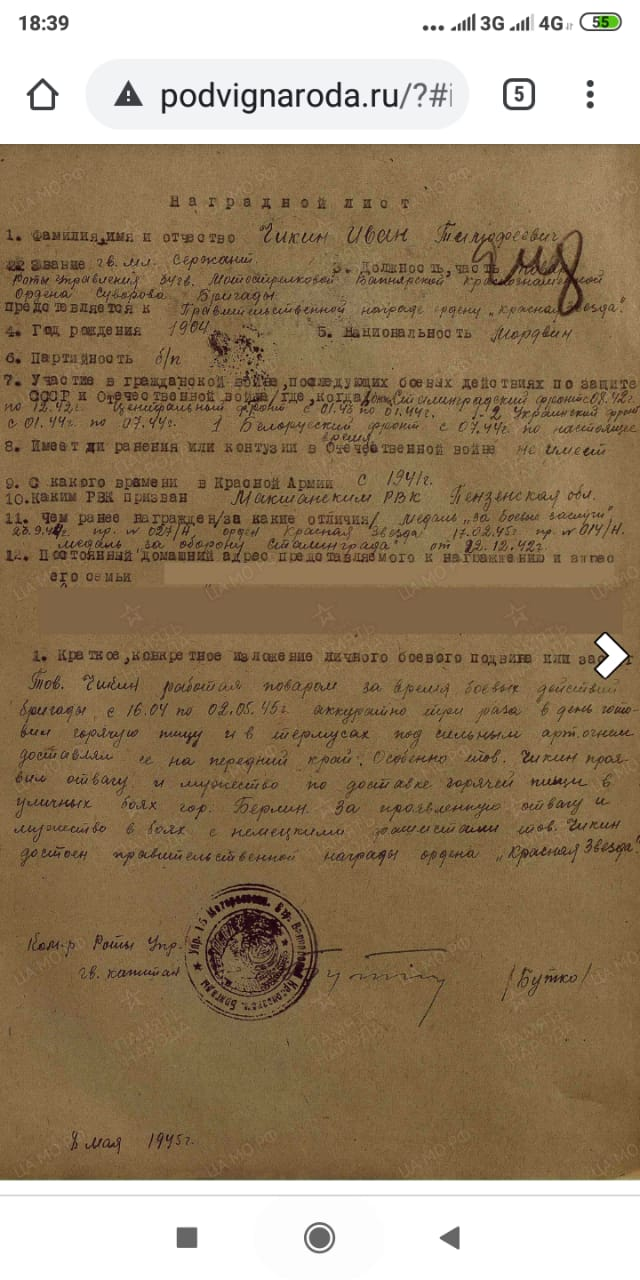 18:39
3G 4G 55
podvignaroda.ru/?#i
5
Наградной лист
1. Фамилия, имя и отчество Чикин Иван Тимофеевич
Звание гв. мл. Сержант 3. Должность, часть повар
Роты Управления 34 гв. Мотострелковой Вапнярской Краснознаменной
Ордена Суворова Бригады.
представляется к Правительственной награде ордену „Красная Звезда".
4. Год рождения 1904 5. Национальность Мордвин
6. Партийность б/п
7. Участие в гражданской войне, последующих боевых действиях по защите
СССР и Отечественной войне /где, когда/ Сталинградский фронт с 08.42г.
по 12.42г. Центральный фронт с 01.43 по 01.44г. 1-2 Украинский фронт
с 01.44г. по 07.44г. 1 Белорусский фронт с 07.44г. по настоящее
время
8. Имеет ли ранения или контузии в Отечественной войне не имеет
9. С какого времени в Красной Армии с 1941г.
10. Каким РВК призван Мокшанским РВК Пензенская обл.
11. Чем ранее награжден /за какие отличия/ медаль „За боевые заслуги"
пр. № 027/Н. орден Красная Звезда 17.02.45г. пр. № 014/Н.
медаль „за оборону Сталинграда" от 22.12.42г.
12. Постоянный домашний адрес представляемого к награждению и адрес
его семьи
1. Краткое, конкретное изложение личного боевого подвига или заслуг
Тов. Чикин работая поваром за время боевых действий
бригады с 16.04 по 02.05.45г. аккуратно три раза в день гото-
вил горячую пищу и в термусах под сильным арт. огнем
доставлял ее на передний край. Особенно тов. Чикин проя-
вил отвагу и мужество по доставке горячей пищи в
уличных боях гор. Берлин. За проявленную отвагу и
мужество в боях с немецкими фашистами тов. Чикин
достоин правительственной награды ордена „Красная Звезда".
Ком-р Роты Упр.
гв. капитан /Бутко/
8 мая 1945г.